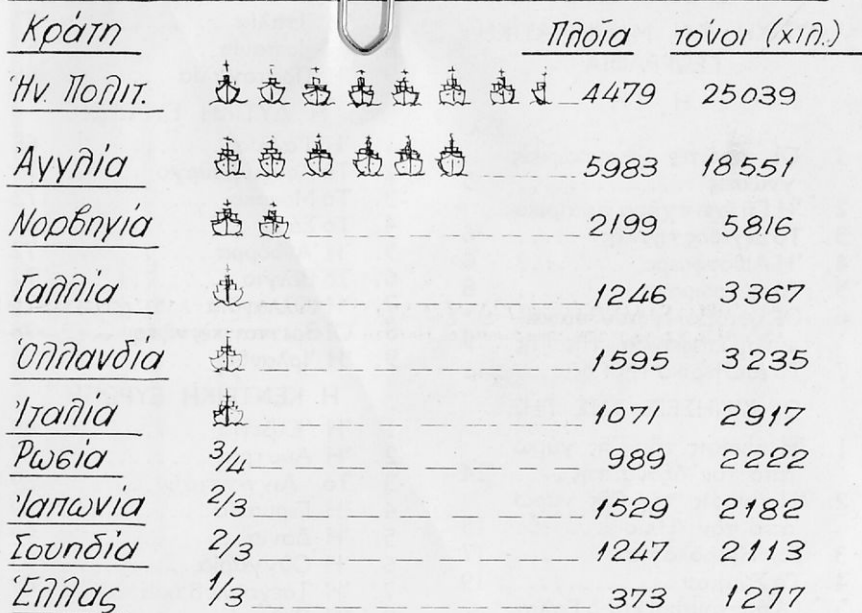 Κράτη Πλοῖα τόνοι (χιλ.)
Ἡν. Πολιτ. 4479 25039
Ἀγγλία 5983 18551
Νορβηγία 2199 5816
Γαλλία 1246 3367
Ὁλλανδία 1595 3235
Ἰταλία 1071 2917
Ρωσία 3/4 989 2222
Ἰαπωνία 2/3 1529 2182
Σουηδία 2/3 1247 2113
Ἑλλάς 1/3 373 1277